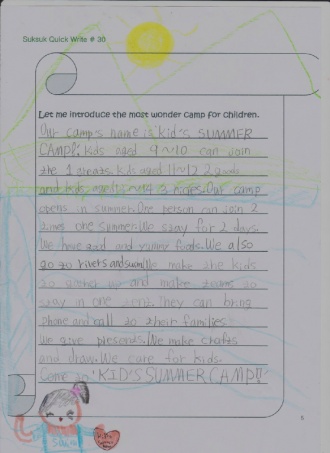 Suksuk Quick Write # 30
Let me introduce the most wonder camp for children.
Our camp's name is "kid's SUMMER
CAMP". Kids aged 9~10 can join
the 1 kids aged 11~12 2
and kids aged 3 . Our camp
opens in summer. One person can join 2
times one summer. We stay for 2 days.
We have good and yummy foods. We also
go to rivers and swim. We make the kids
to gather up and make teams to
stay in one tent. They can bring
phone and call to their families.
We give presends. We make crafts
and draw. We care for kids.
Come to "KID'S SUMMER CAMP!!"